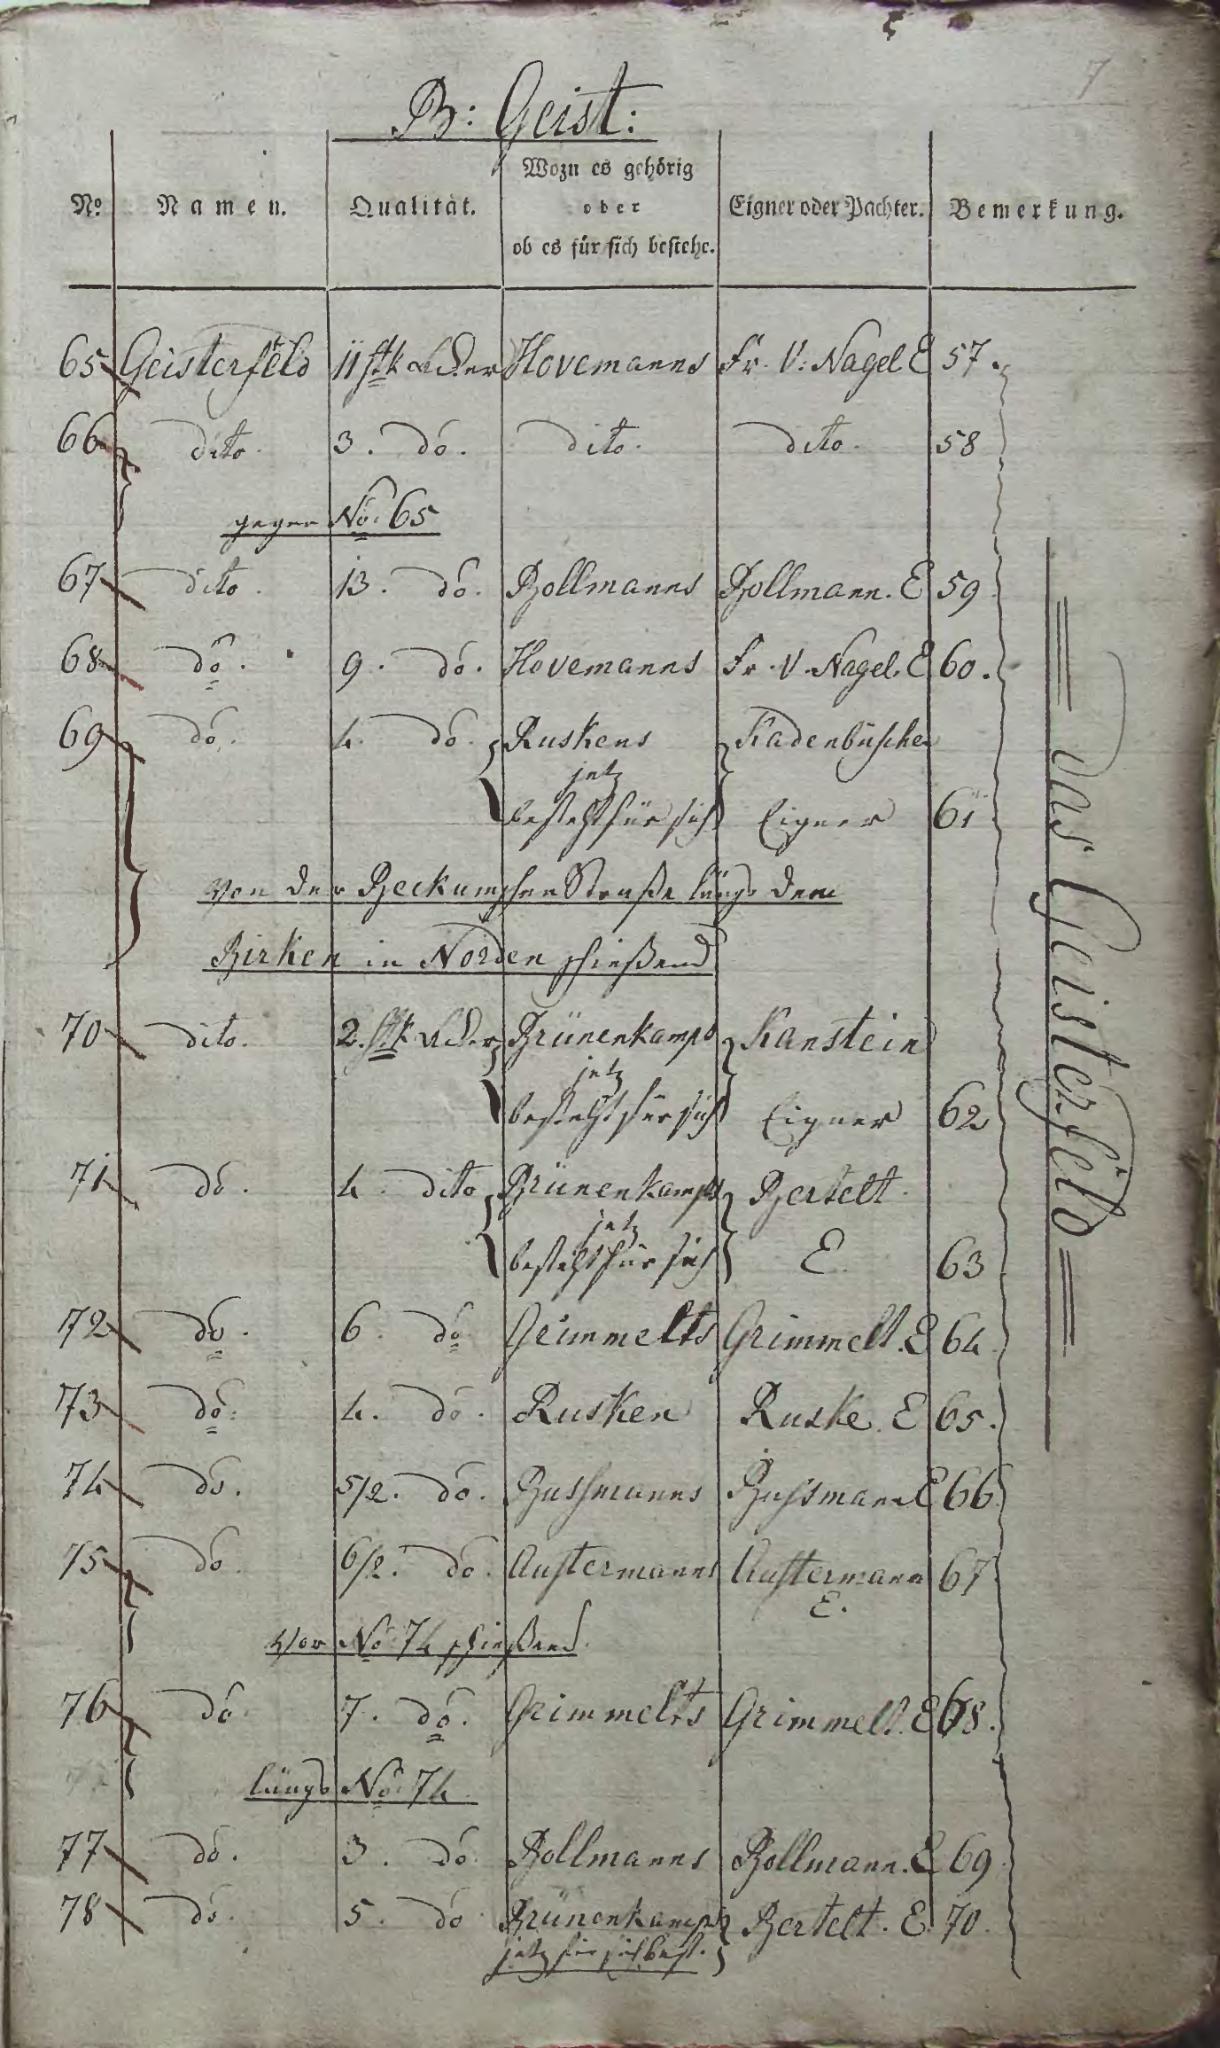 7
B: Geist:
No Namen. Qualität. Wozu es gehörig oder ob es für sich bestehe. Eigner oder Pachter. Bemerkung.
65 Geisterfeld 11 stk Acker Hovemanns Fr. V: Nagel E 57.
66 dito. 3. do. dito. dito. 58
gegen No: 65
67 dito. 13. do. Bollmanns Bollmann. E 59
68 do. 9. do. Hovemanns Fr. V. Nagel. E 60.
69 do. 4. do. Ruskens Kadenbüscher
jetz
besteht für sich Eigner 61
Von der Beckumschen Straße längs dem
Birken in Norden schießend
70 dito. 2. stk Acker Brünenkamps Kanstein
jetz
besteht für sich Eigner 62
71 do. 4. dito Brünenkamps Bertelt.
jetz
besteht für sich E. 63
72 do. 6. do Grimmelts Grimmelt. E 64.
73 do. 4. do. Rusken Ruske. E 65.
74 do. 5/2. do. Bussmanns Bussmann E 66
75 do. 6/2. do. Austermanns Austermann 67
E.
Vor No: 74 schießend.
76 do. 7. do. Grimmelts Grimmelt. E 68.
längs No: 74.
77 do. 3. do Bollmanns Bollmann. E 69
78 do. 5. do Brünenkamps Bertelt. E. 70.
jetz für sich best.
Das Geisterfeld